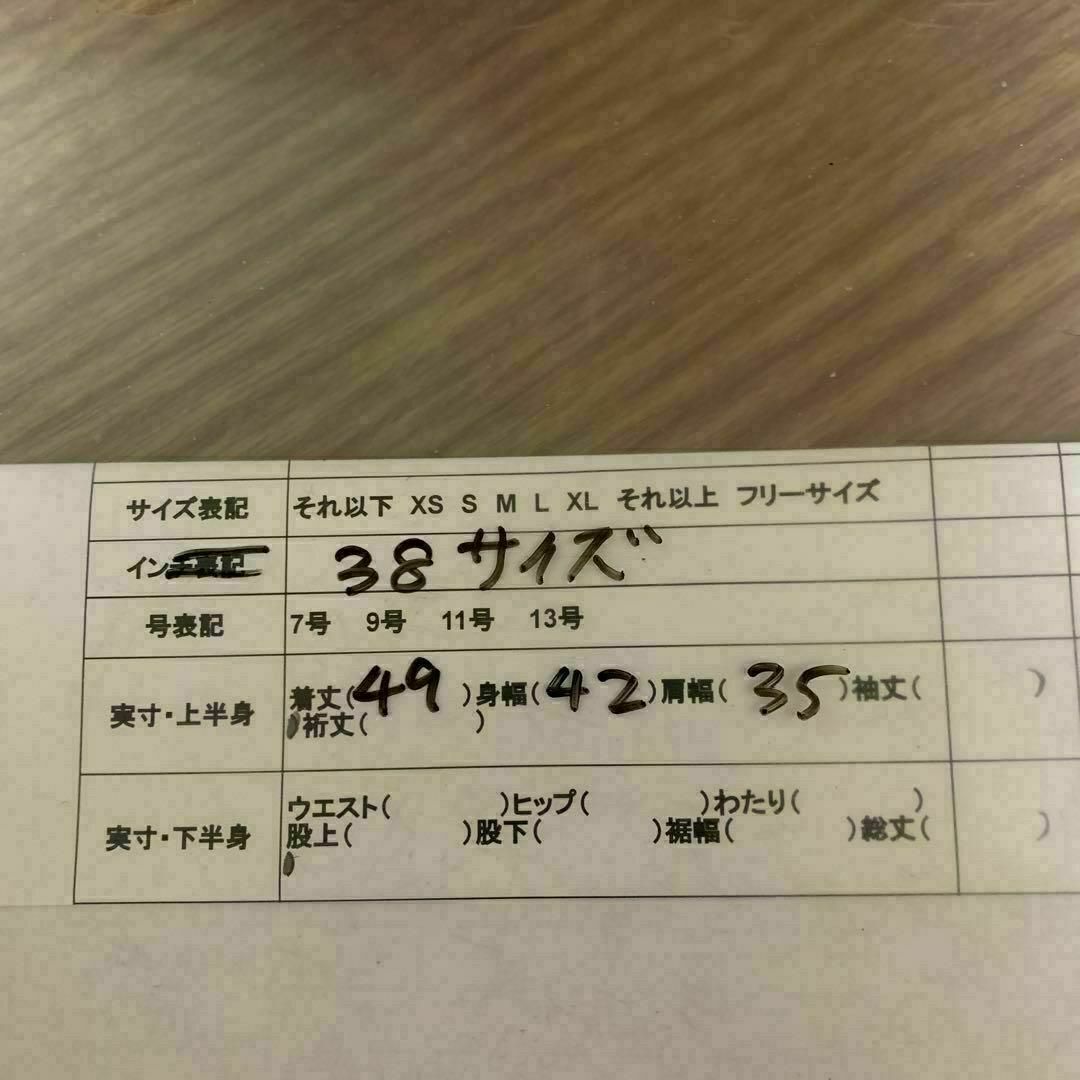 サイズ表記 それ以下 XS S M L XL それ以上 フリーサイズ
インチ表記 38サイズ
号表記 7号 9号 11号 13号
実寸・上半身 着丈(49 )身幅(42)肩幅( 35)袖丈( )
)裄丈( )
実寸・下半身 ウエスト( )ヒップ( )わたり( )
股上( )股下( )裾幅( )総丈( )
)